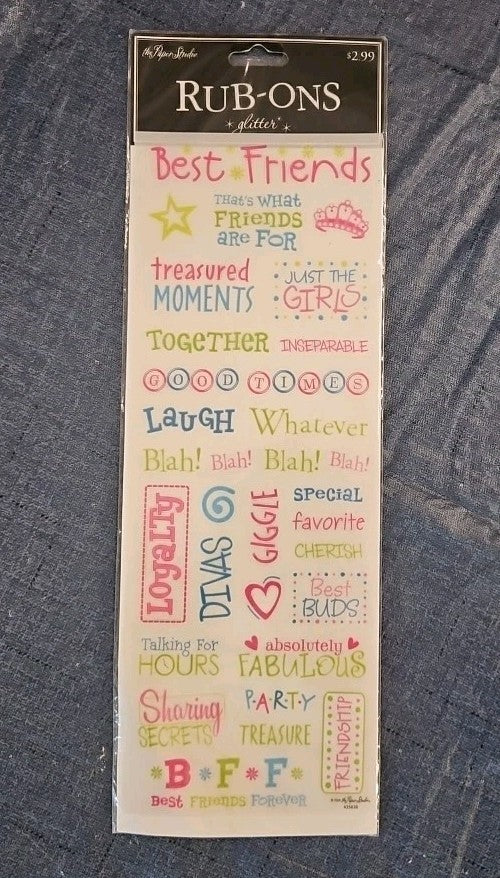 the Paper Studio
$2.99
RUB-ONS
glitter
Best Friends
THaT'S WHaT
FRiENDS
aRE FOR
treasured
MOMENTS
JUST THE
GIRLS
ToGeTHeR
INSEPARABLE
GOOD TIMES
LauGH
Whatever
Blah! Blah! Blah! Blah!
LoyaLTy
DIVAS
GIGGLE
SPeciaL
favorite
CHERISH
Best
BUDS
Talking For
HOURS
absolutely
FABULOUS
Sharing
SECRETS
P·A·R·T·Y
TREASURE
FRIENDSHIP
B F F
BeST FRieNDS FOReVeR